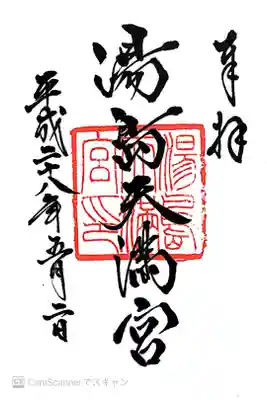 奉拝
湯島天満宮
平成二十八年五月二日
CamScanner でスキャン